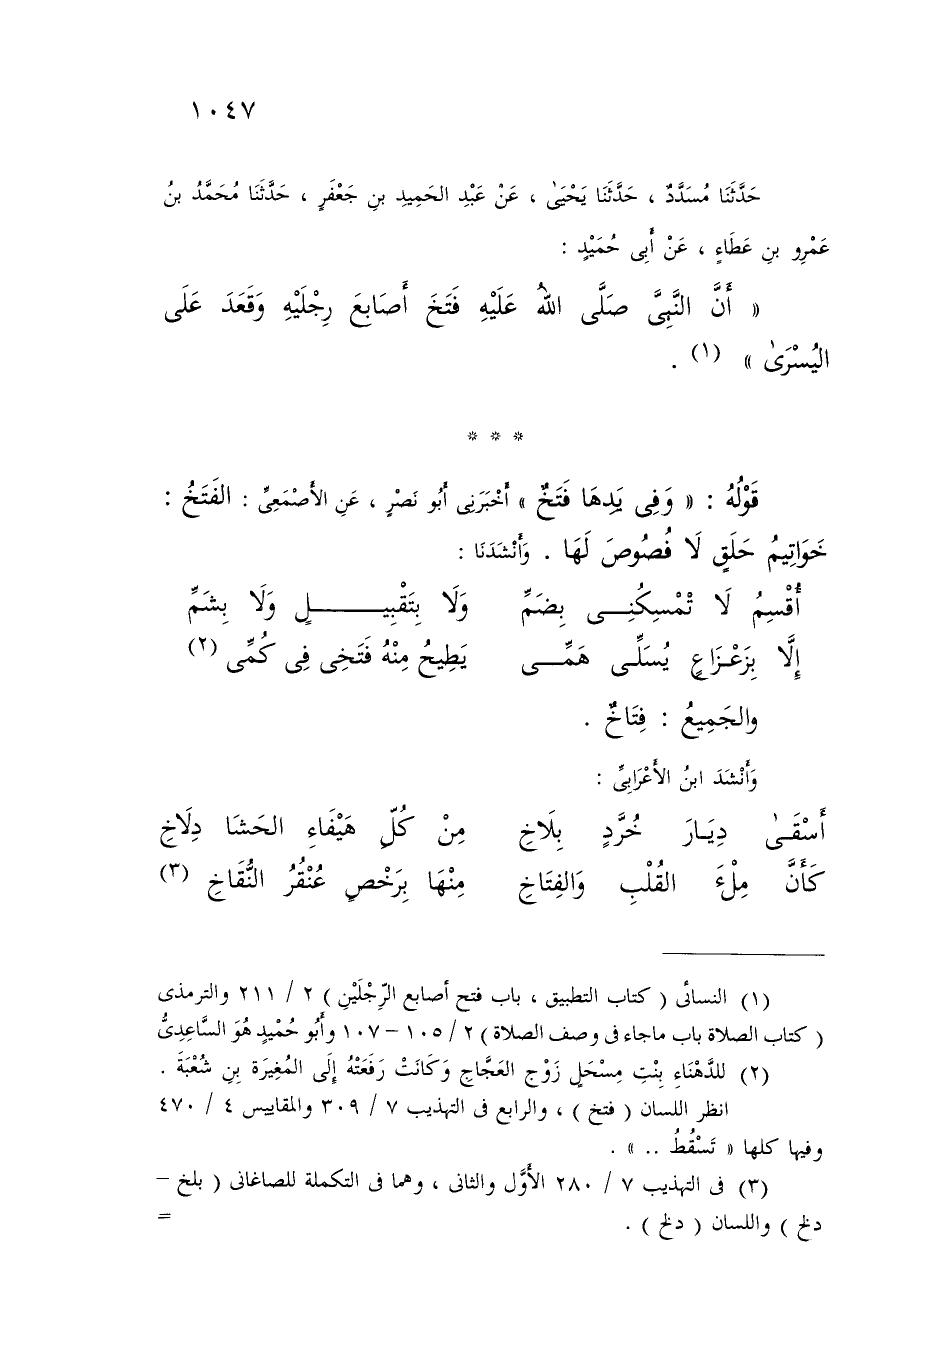 ١٠٤٧
حَدَّثَنَا مُسَدَّدٌ ، حَدَّثَنَا يَحْيَىٰ ، عَنْ عَبْدِ الحَمِيدِ بنِ جَعْفَرٍ ، حَدَّثَنَا مُحَمَّدُ بنُ
عَمْرِو بنِ عَطَاءٍ ، عَنْ أَبِى حُمَيْدٍ :
« أَنَّ النَّبِىَّ صَلَّى اللهُ عَلَيْهِ فَتَخَ أَصَابعَ رِجْلَيْهِ وَقَعَدَ عَلَى
اليُسْرَىٰ » (١) .
* * *
قَوْلُهُ : « وَفِى يَدِهَا فَتَخٌ » أَخْبَرَنِى أَبُو نَصْرٍ ، عَنِ الأَصْمَعِىِّ : الفَتَخُ :
خَوَاتِيمُ حَلَقٍ لَا فُصُوصَ لَهَا . وَأَنْشَدَنَا :
أُقْسِمُ لَا تْمْسِكُنِــى بِضَمِّ وَلَا بِتَقْبِيــــــلٍ وَلَا بِشَمِّ
إِلَّا بِزَعْـزَاعٍ يُسَلِّــى هَمِّــى يَطِيحُ مِنْهُ فَتَخِى فِى كُمِّى (٢)
والجَمِيعُ : فِتَاخٌ .
وَأَنْشَدَ ابنُ الأَعْرَابِىِّ :
أَسْقَــىٰ دِيَـارَ خُرَّدٍ بِلَاخِ مِنْ كُلِّ هَيْفَاءِ الحَشَا دِلَاخِ
كَأَنَّ مِلْءَ القُلْبِ وَالفِتَاخِ مِنْهَا بِرَخْصٍ عُنْقُرُ النُّقَاخِ (٣)
(١) النسائى ( كتاب التطبيق ، باب فتح أصابع الرِّجْلَيْنِ ) ٢ / ٢١١ والترمذى
( كتاب الصلاة باب ماجاء فى وصف الصلاة ) ٢ / ١٠٥ – ١٠٧ وأَبُو حُمَيْدٍ هُوَ السَّاعِدِىُّ
(٢) للدَّهْنَاءِ بِنْتِ مِسْحَلٍ زَوْجِ العَجَّاجِ وَكَانَتْ رَفَعَتْهُ إِلَى المُغِيرَة بِنِ شُعْبَةَ .
انظر اللسان ( فتخ ) ، والرابع فى التهذيب ٧ / ٣٠٩ والمقاييس ٤ / ٤٧٠
وفيها كلها « تَسْقُطُ .. » .
(٣) فى التهذيب ٧ / ٢٨٠ الأَوَّل والثانى ، وهما فى التكملة للصاغانى ( بلخ –
دلخ ) واللسان ( دلخ ) . =